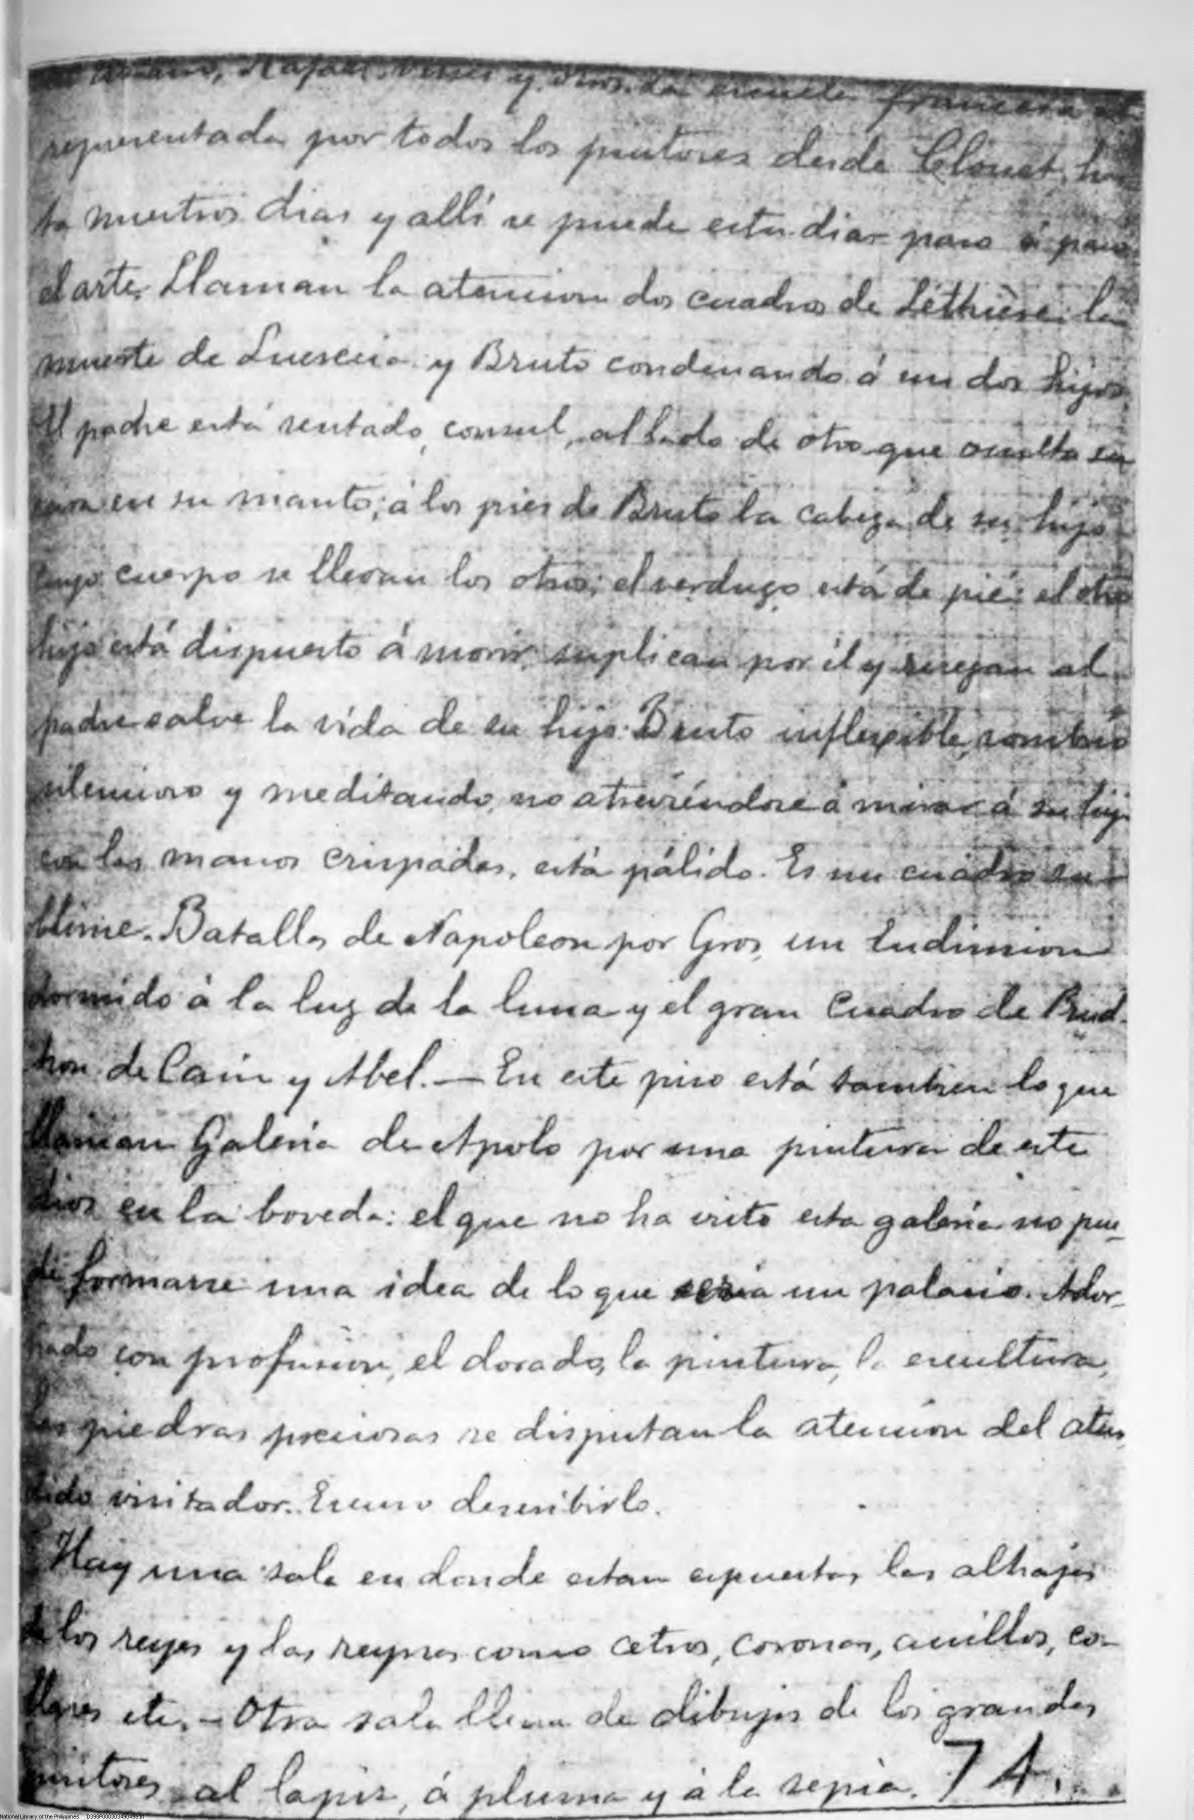 Rafael, y otros. La escuela francesa
representada por todos los pintores desde Clouet, has
ta nuestros dias y allí se puede estudiar paso á paso
el arte. Llaman la atencion dos cuadros de Léthière: la
muerte de Lucrecia y Bruto condenando á sus dos hijos.
El padre está sentado, consul, al lado de otro que oculta su
cara en su manto; á los piés de Bruto la cabeza de su hijo
cuyo cuerpo se llevan los otros; el verdugo está de pié: el otro
hijo está dispuesto á morir, suplican por él y ruegan al
padre salve la vida de su hijo. Bruto inflexible, sombrio
silencioso y meditando, no atreviéndose á mirar á su hijo
con las manos crispadas, está pálido. Es un cuadro su-
blime. Batallas de Napoleon por Gros, un Endimion
dormido á la luz de la luna y el gran cuadro de Prud-
hon de Cain y Abel. — En este piso está tambien lo que
llaman Galeria de Apolo por una pintura de este
dios en la boveda: el que no ha visto esta galeria no pue-
de formarse una idea de lo que seria un palacio. Ador-
nado con profusion, el dorado, la pintura, la escultura,
las piedras preciosas se disputan la atencion del aten
dido visitador. Escuso describirlo.
Hay una sala en donde estan espuestas las alhajas
de los reyes y las reynas como cetros, coronas, anillos, co-
llares etc. — Otra sala llena de dibujos de los grandes
pintores, al lapiz, á pluma y á la sepia. 74.
National Library of the Philippines